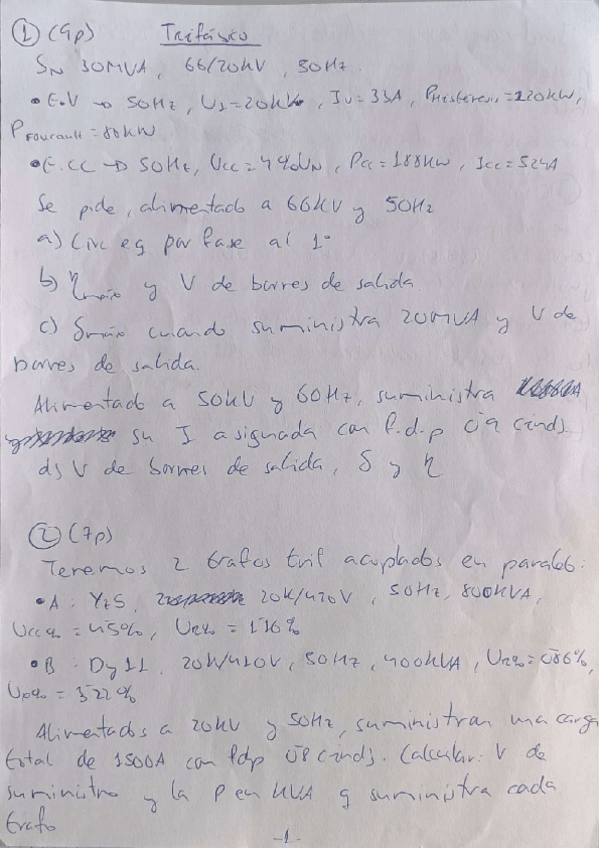 ① (9p) Trifásico
SN 30MVA, 66/20kV, 50Hz.
• E.V → 50Hz, U1=20kV, IV=33A, PHisteresis=120kW,
PFoucault=80kW
• E.CC → 50Hz, Ucc=4%UN, Pcc=188kW, Icc=524A
Se pide, alimentado a 66kV y 50Hz
a) Circ eq por fase al 1º
b) ηmáx y V de bornes de salida
c) δmáx cuando suministra 20MVA y V de
bornes de salida.
Alimentado a 50kV y 60Hz, suministra
su I asignada con f.d.p 0'9 (ind).
d) V de bornes de salida, δ y η
② (7p)
Tenemos 2 trafos trif acoplados en paralelo:
• A: Yz5, 20k/420V, 50Hz, 800KVA,
Ucc%=4'5%, UR%=1'16%
• B: Dy11, 20k/410V, 50Hz, 400KVA, UR%=0'86%,
UX%=3'22%
Alimentados a 20kV y 50Hz, suministran una carga
total de 1500A con fdp 0'8 (ind). Calcular: V de
suministro y la P en KVA q suministra cada
trafo
-1-